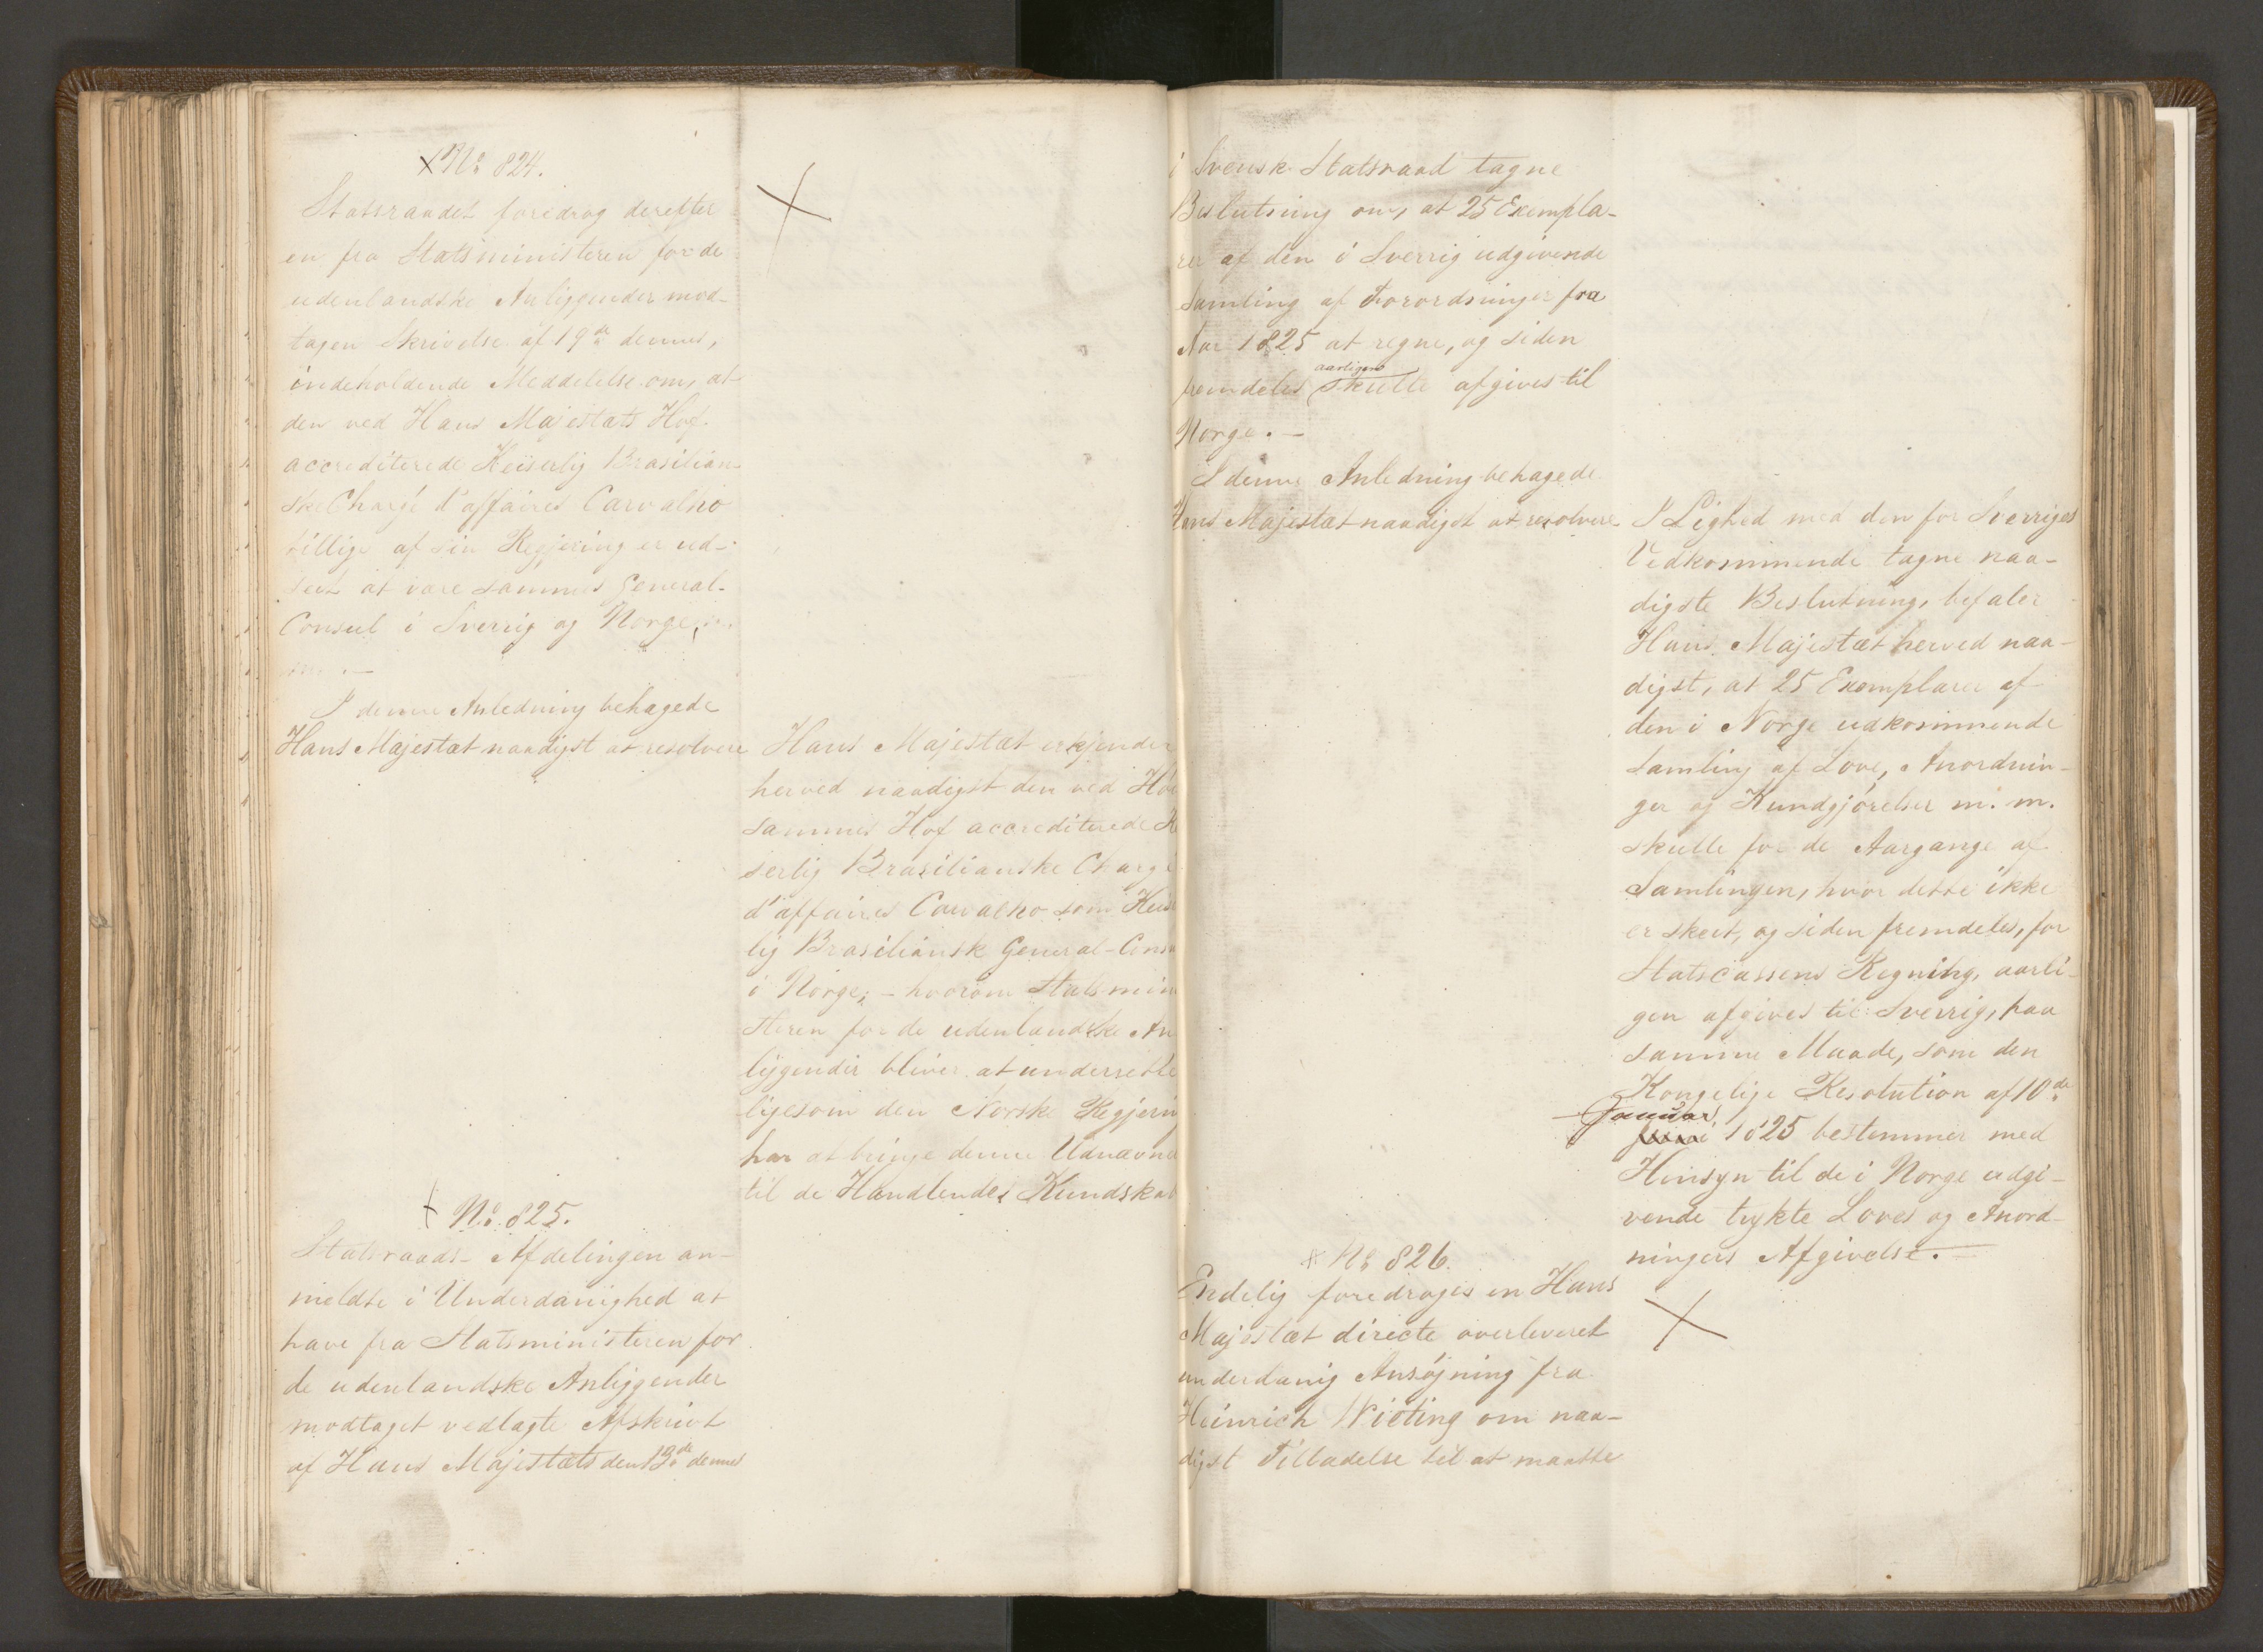 No 824.
Statsraadet foredrog derefter
en fra Statsministeren for de
udenlandske Anliggender mod-
tagen Skrivelse af 19de dennes,
indeholdende Meddelelse om, at
den ved Hans Majestæts Hof
accrediterede Keiserlig Brasilian-
ske Chargé d'affaires Carvalho
tillige af sin Regjering er ud-
seet at være sammes General-
Consul i Sverrig og Norge, m.
m. —
I denne Anledning behagede
Hans Majestæt naadigst at resolvere
Hans Majestæt erkjender
herved naadigst den ved Høi
sammes Hof accrediterede Ke
serlig Brasilianske Chargé
d'affaires Carvalho som Keise
lig Brasiliansk General-Consu
i Norge; - hvorom Statsmini
steren for de udenlandske An
liggender bliver at underrette
ligesom den Norske Regjerin
har at bringe denne Udnævne
til de Handlendes Kundskab
No. 825.
Statsraads-Afdelingen an-
meldte i Underdanighed at
have fra Statsministeren for
de udenlandske Anliggender
modtaget vedlagte Afskrivt
af Hans Majestæts den 13de dennes
i Svensk Statsraad tagne
Beslutning om, at 25 Exempla-
rer af den i Sverrig udgivende
Samling af Forordninger fra
Aar 1825 at regne, og siden
fremdeles aarligen skulle afgives til
Norge. —
I denne Anledning behagede
Hans Majestæt naadigst at resolvere
I Lighed med den for Sverriges
Vedkommende tagne naa-
digste Beslutning, befaler
Hans Majestæt herved naa-
digst, at 25 Exemplarer af
den i Norge udkommende
Samling af Love, Anordnin-
ger og Kundgjørelser m. m.
skulle for de Aargange af
Samlingen, hvor dette ikke
er skeet, og siden fremdeles, for
Statscassens Regning, aarli-
gen afgives til Sverrig, paa
samme Maade, som den
Kongelige Resolution af 10de
Januar
Juni 1825 bestemmer med
Hensyn til de i Norge udgi-
vende trykte Loves og Anord-
ningers Afgivelse. —
No 826.
Endelig foredroges en Hans
Majestæt directe overleveret
underdanig Ansøgning fra
Heinrich Wieting om naa-
digst Tilladelse til at maatte